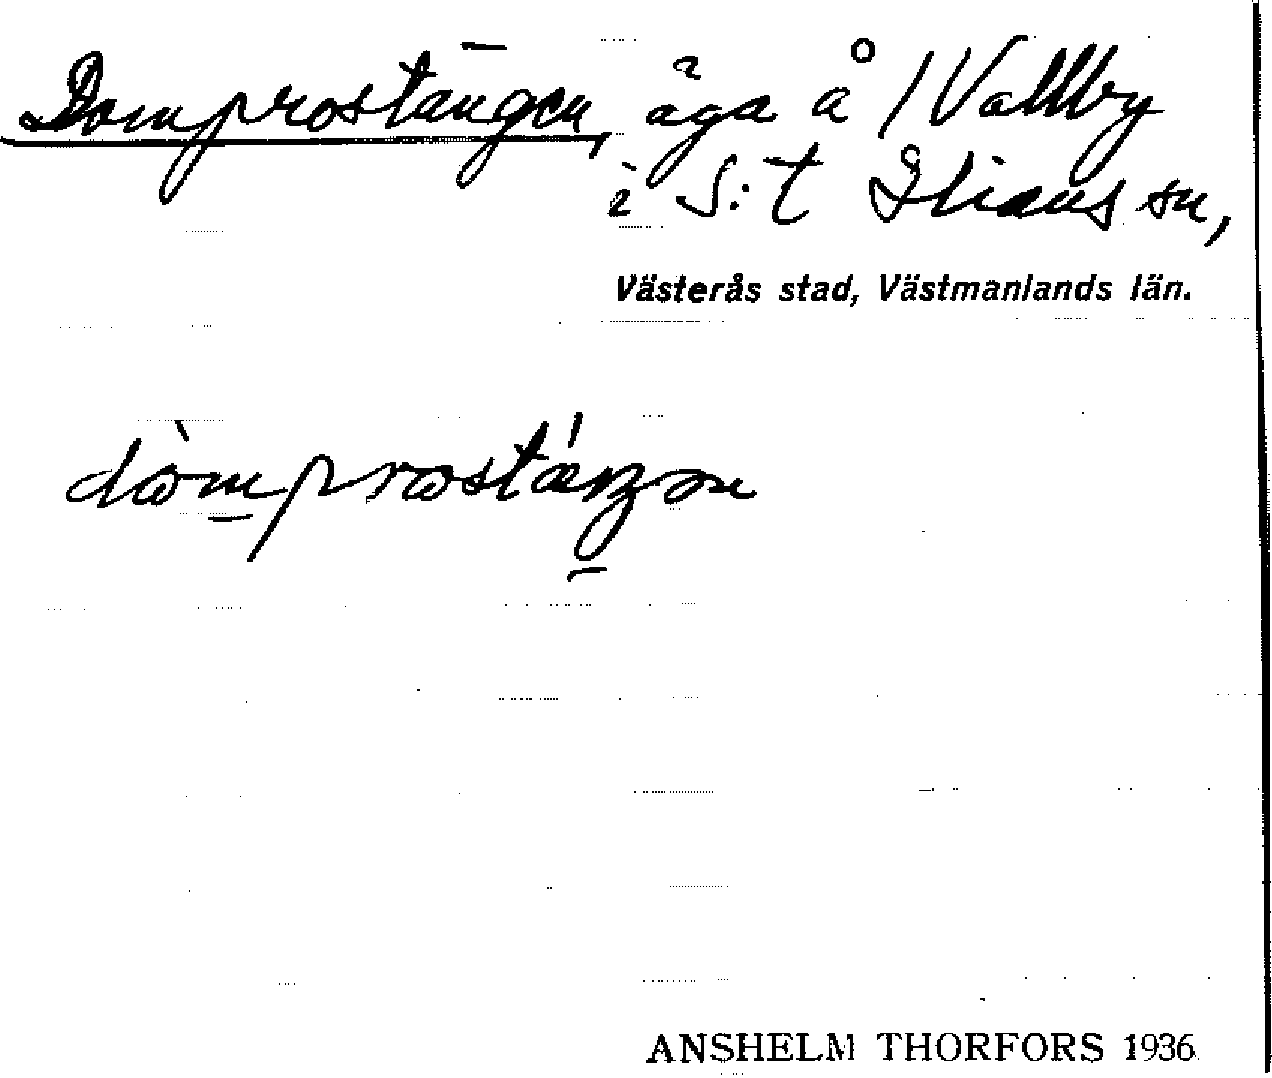 Domprostängen, äga å /Vallby
i S:t Ilians sn,
Västerås stad, Västmanlands län.
dòmprostáŋən
ANSHELM THORFORS 1936